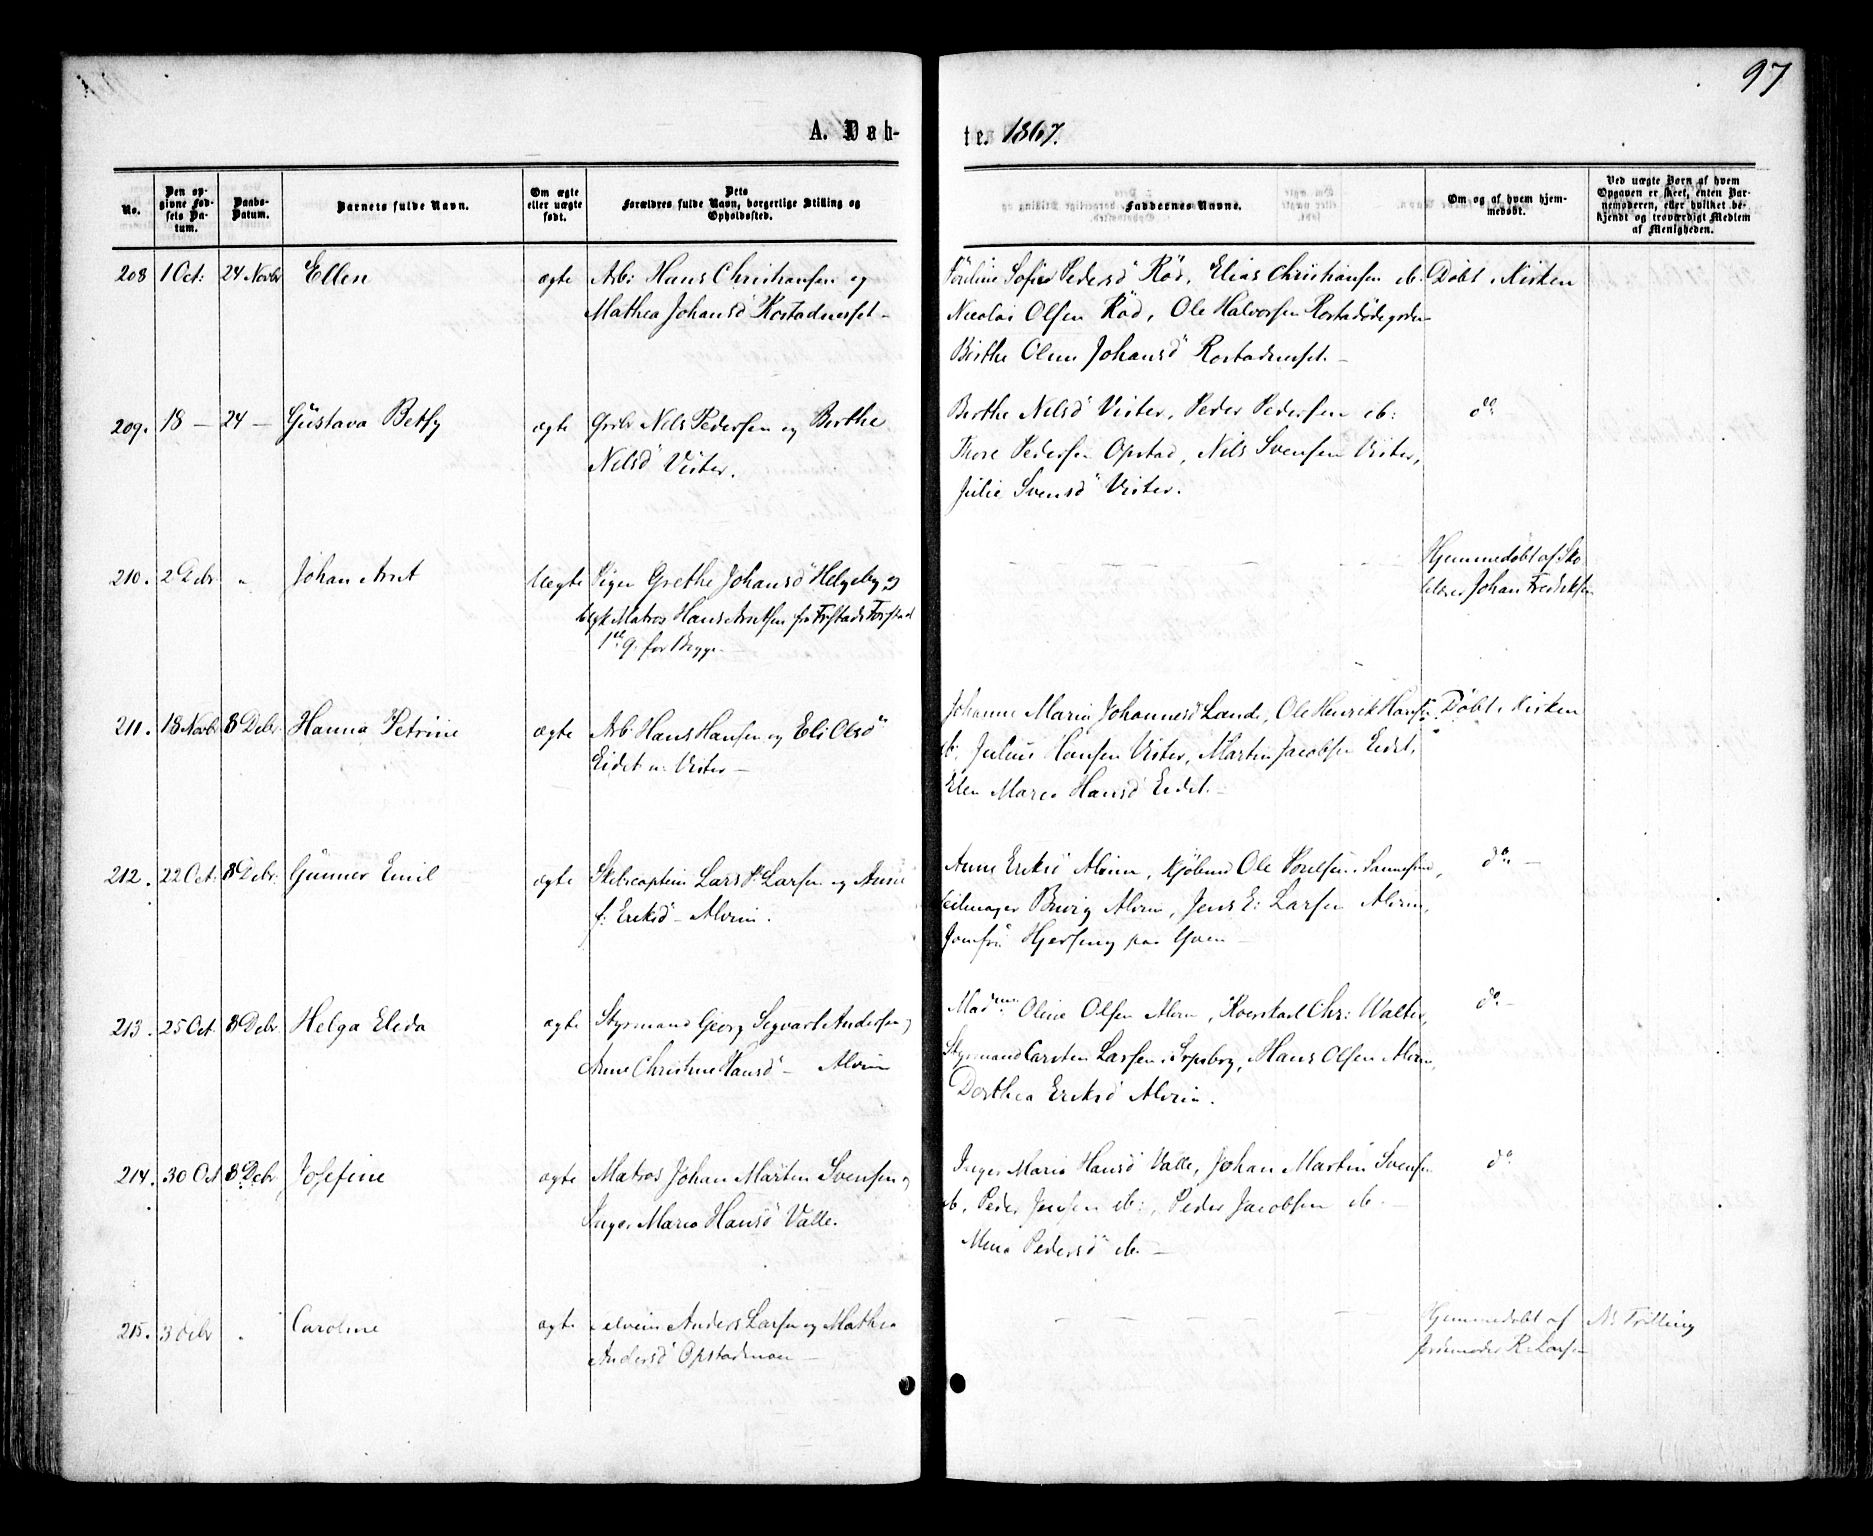 97
A. Døb-
te. 1867.
No.
Den op-
givne Fød-
sels Da-
tum.
Daabs-
Datum.
Barnets fulde Navn.
Om ægte
eller uægte
født.
Dets
Forældres fulde Navn, borgerlige Stilling og
Opholdssted.
Faddernes Navne.
Om og af hvem hjem-
medøbt.
Ved uægte Børn af hvem
Opgaven er skeet, enten Bar-
nemoderen, eller hvilket be-
kjendt og troværdigt Medlem
af Menigheden.
208 1 Oct: 24 Novbr Ellen ægte Arb: Hans Christiansen og
Mathea Johansd Rostadneset –
Sofie Pedersd Rød, Elias Christiansen ib:
Nicolai Olsen Rød, Ole Halvorsen Rostadødegorden
Birthe Oline Johansd Rostadneset. –
Døbt i Kirken
209. 18 – 24 – Gustava Betsy ægte Grbr Nels Pedersen og Berthe
Nelsd Vister.
Berthe Nelsd Vister, Peder Pedersen ib:
Thore Pedersen Opstad, Nils Svensen Vister,
Julie Svensd Vister.
do
210. 2 Debr " Johan Arnt Uægte Pigen Grethe Johansd Helgeby og
Ugk Matros Hans Arntsen fra Frstads Forstad
1ste G. for Begge –
Hjemmedøbt af Sko-
lelærer Johan Fredriksen
211. 18 Novbr 8 Debr Hanna Petrine ægte Arb: Hans Hansen og Eli Olsd
Eidet u. Vister –
Johanne Maria Johannesd Lande, Ole Henrik Hansen
ib, Julius Hansen Vister, Martin Jacobsen Eidet,
Elen Maria Hansd Eidet. –
Døbt i Kirken
212. 22 Oct: 8 Debr: Gunner Emil ægte Skibscaptein Lars P. Larsen og Anne
f: Eriksd – Alvim.
Anne Eriksd Alvim, Kjøbmd Ole
Seilmager Alvim, Jens E: Larsen Alvim,
Jomfru
do –
213. 25 Oct. 8 Debr Helga Eleda ægte Styrmand Georg Segvart Andersen og
Anne Christine Hansd – Alvim
Madme Oline Olsen Alvim, Chr: Walter,
Styrmand Carsten Larsen Srpsborg, Hans Olsen Alvim,
Dorthea Eriksd Alvim.
do –
214. 30 Oct 8 Debr Josefine ægte Matros Johan Martin Svensen og
Inger Maria Hansd Valle.
Inger Maria Hansd Valle, Johan Martin Svensen
ib, Peder Jensen ib:, Peder Jacobsen ib. –
Mina Pedersd ib. –
do
215. 3 Debr " Caroline ægte Anders Larsen og Mathea
Andersd Opstadmoen –
Hjemmedøbt af
Jordmoder R. Larsen